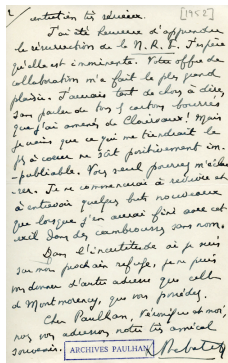 2
[1952]
entretien très sérieux.
J'ai été heureux d'apprendre
la résurrection de la N.R.F. J'espère
qu'elle est imminente. Votre offre de
collaboration m'a fait le plus grand
plaisir. J'aurais tant de choses à dire,
sans parler de tous les cartons bourrés
que j'ai amenés de Clairvaux! Mais
je crains que ce qui me tiendrait le
plus à coeur ne soit positivement im-
publiable. Vous seul pourrez m'éclai-
rer. Je ne commencerai à revivre et
à entrevoir quelques buts nouveaux
que lorsque j'en aurai fini avec cet
exil dans des cambrousses sans nom.
Dans l'incertitude où je suis
sur mon prochain refuge, je ne puis
vous donner d'autre adresse que celle
de Montmorency, que vous possédez.
Cher Paulhan, Véronique et moi,
nous vous adressons notre très amical
souvenir.
Rebatet
ARCHIVES PAULHAN